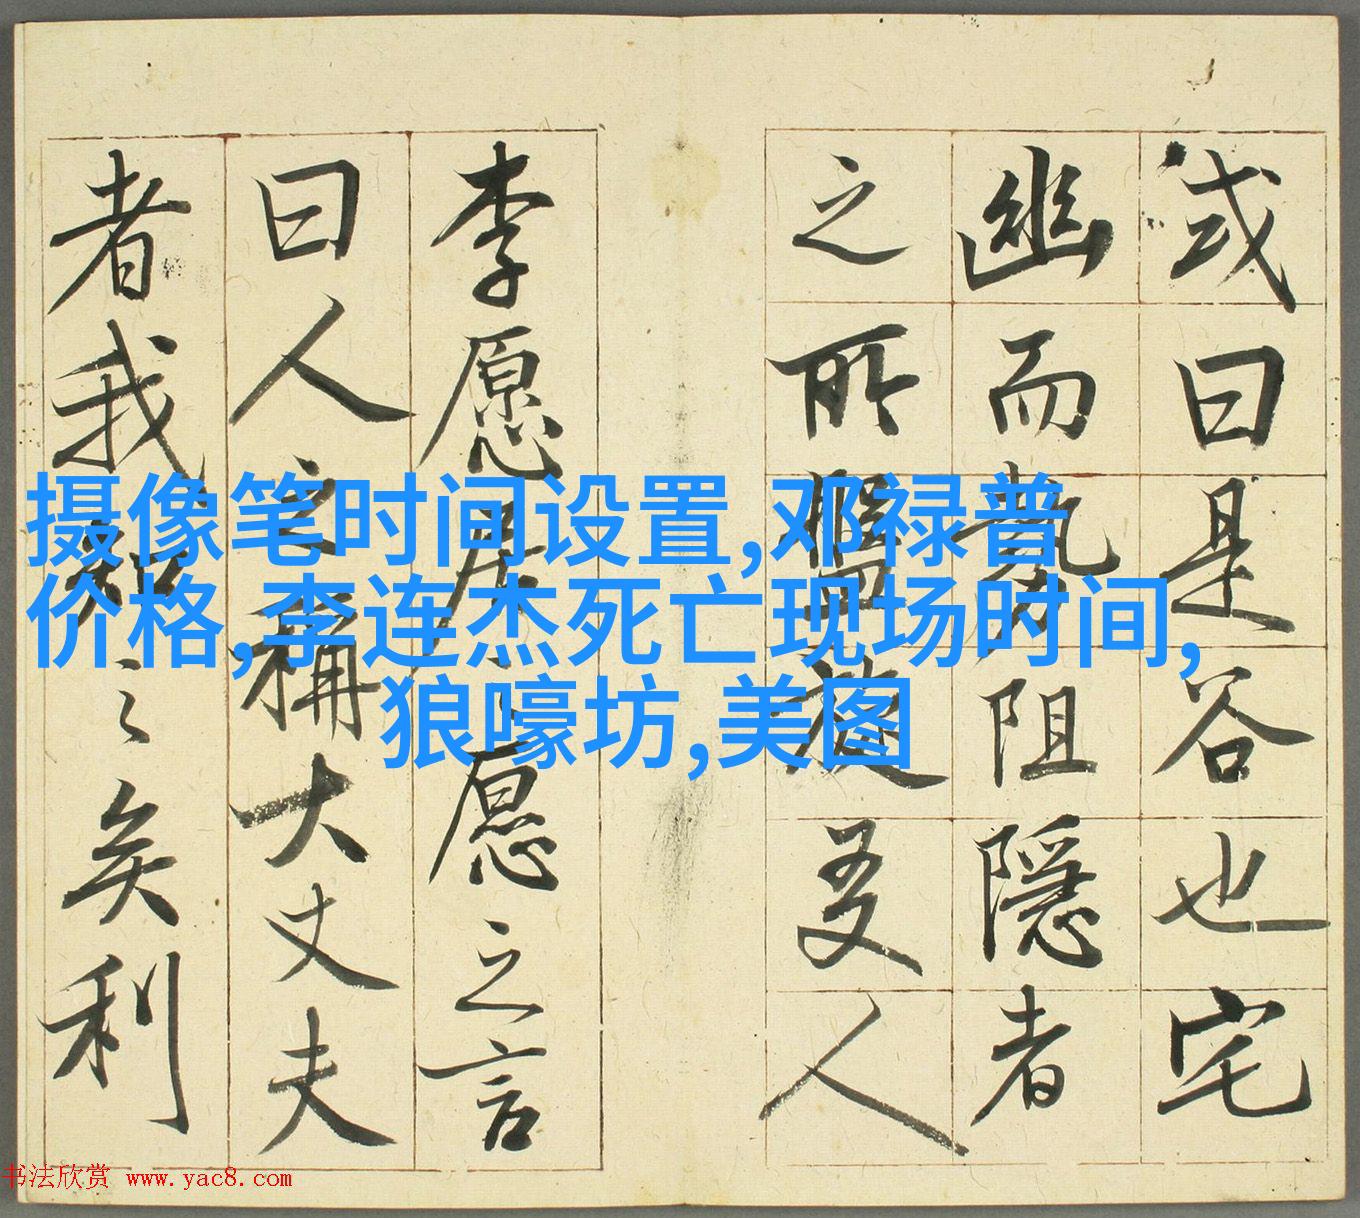 或曰是谷也宅
幽而勢阻隱者
之所盤旋友人
李愿居之愿之言
曰人之稱大丈夫
者我知之矣利
摄像笔时间设置,邓禄普
价格,李连杰死亡现场时间,
狼嚎坊,美图
书法欣赏 www.yac8.com